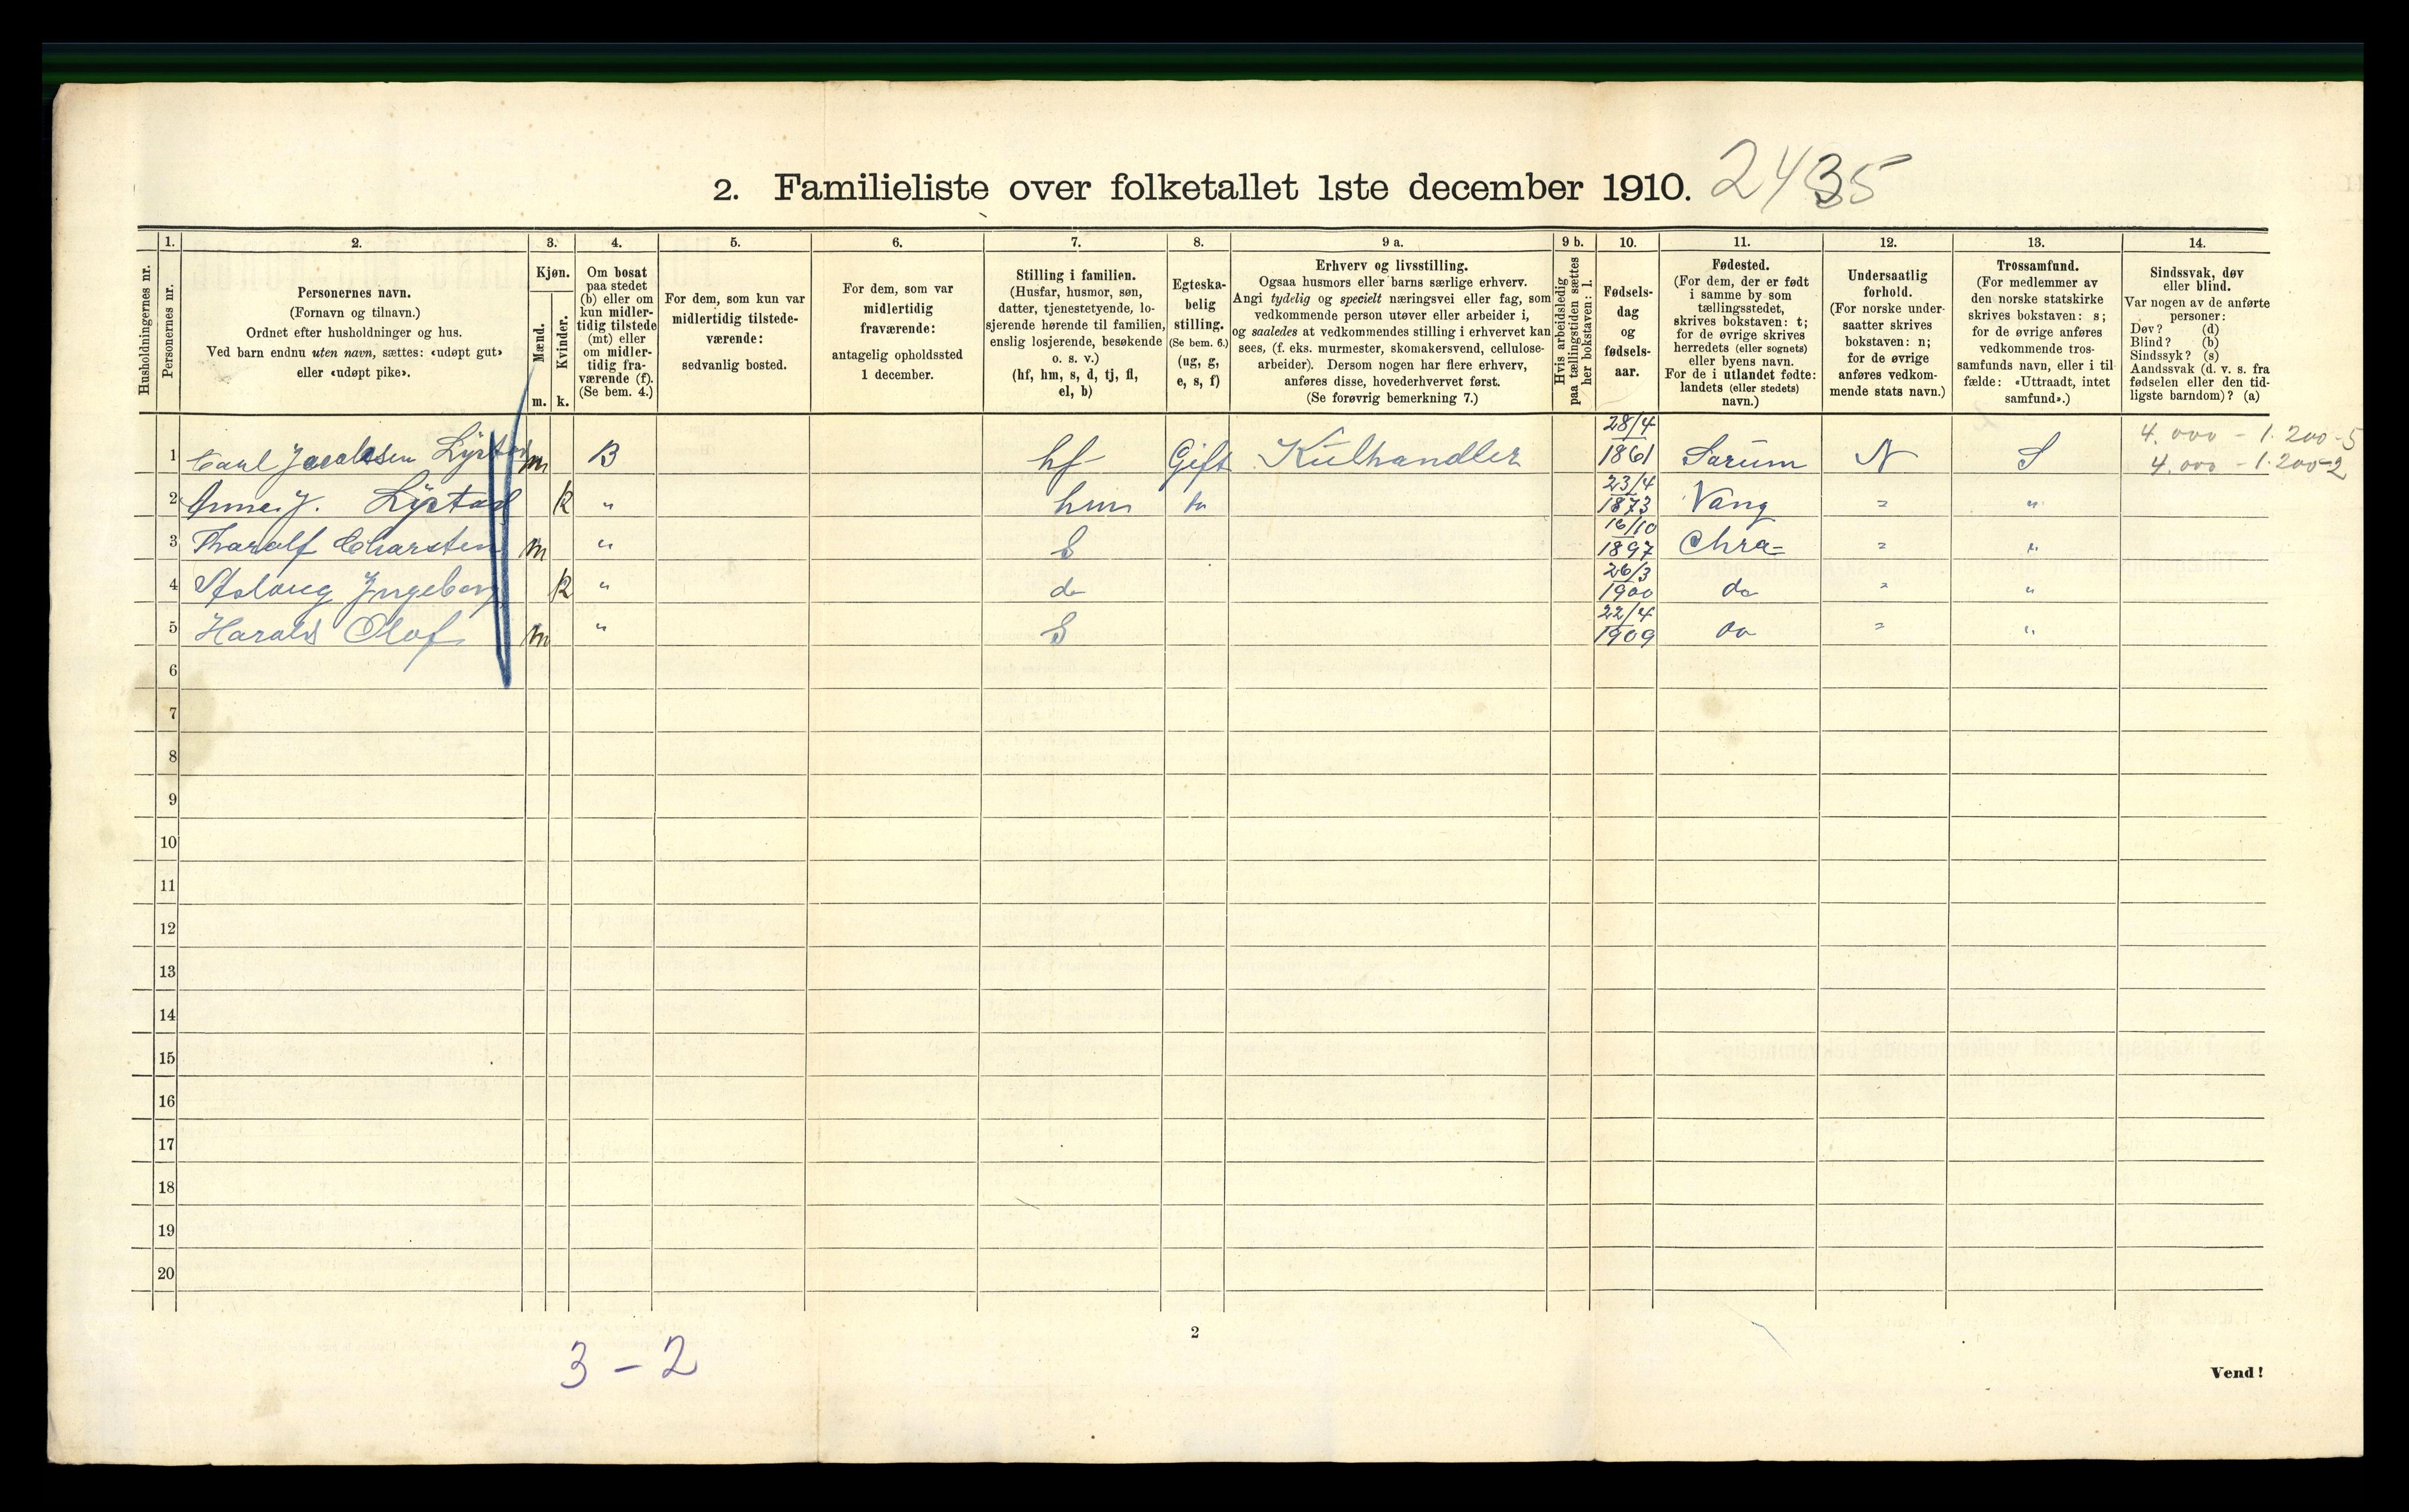 2. Familieliste over folketallet 1ste december 1910. 2435
Husholdningernes nr.
1. Personernes nr.
2. Personernes navn.
(Fornavn og tilnavn.)
Ordnet efter husholdninger og hus.
Ved barn endnu uten navn, sættes: «udøpt gut»
eller «udøpt pike».
3. Kjøn.
Mænd. m.
Kvinder. k.
4. Om bosat
paa stedet
(b) eller om
kun midler-
tidig tilstede
(mt) eller
om midler-
tidig fra-
værende (f).
(Se bem. 4.)
5. For dem, som kun var
midlertidig tilstede-
værende:
sedvanlig bosted.
6. For dem, som var
midlertidig
fraværende:
antagelig opholdssted
1 december.
7. Stilling i familien.
(Husfar, husmor, søn,
datter, tjenestetyende, lo-
sjerende hørende til familien,
enslig losjerende, besøkende
o. s. v.)
(hf, hm, s, d, tj, fl,
el, b)
8. Egteska-
belig
stilling.
(Se bem. 6.)
(ug, g,
e, s, f)
9 a. Erhverv og livsstilling.
Ogsaa husmors eller barns særlige erhverv.
Angi tydelig og specielt næringsvei eller fag, som
vedkommende person utøver eller arbeider i,
og saaledes at vedkommendes stilling i erhvervet kan
sees, (f. eks. murmester, skomakersvend, cellulose-
arbeider). Dersom nogen har flere erhverv,
anføres disse, hovederhvervet først.
(Se forøvrig bemerkning 7.)
9 b. Hvis arbeidsledig
paa tællingstiden sættes
her bokstaven: l.
10. Fødsels-
dag
og
fødsels-
aar.
11. Fødested.
(For dem, der er født
i samme by som
tællingsstedet,
skrives bokstaven: t;
for de øvrige skrives
herredets (eller sognets)
eller byens navn.
For de i utlandet fødte:
landets (eller stedets)
navn.)
12. Undersaatlig
forhold.
(For norske under-
saatter skrives
bokstaven: n;
for de øvrige
anføres vedkom-
mende stats navn.)
13. Trossamfund.
(For medlemmer av
den norske statskirke
skrives bokstaven: s;
for de øvrige anføres
vedkommende tros-
samfunds navn, eller i til-
fælde: «Uttraadt, intet
samfund».)
14. Sindssvak, døv
eller blind.
Var nogen av de anførte
personer:
Døv? (d)
Blind? (b)
Sindssyk? (s)
Aandssvak (d. v. s. fra
fødselen eller den tid-
ligste barndom)? (a)
1 Carl Jacobsen Lystad m B hf Gift Kulhandler 28/4 1861 Sørum N S 4.000 - 1.200-5
4.000 - 1.200-2
2 Anne J. Lystad k " hm do 23/4 1873 Vang " "
3 Tharalf Charsten m " S 16/10 1897 Chra= " "
4 Aslaug Ingeborg k " do 26/3 1900 do " "
5 Harald Olaf m " S 22/4 1909 do " "
6
7
8
9
10
11
12
13
14
15
16
17
18
19
20
2
3 - 2
Vend!